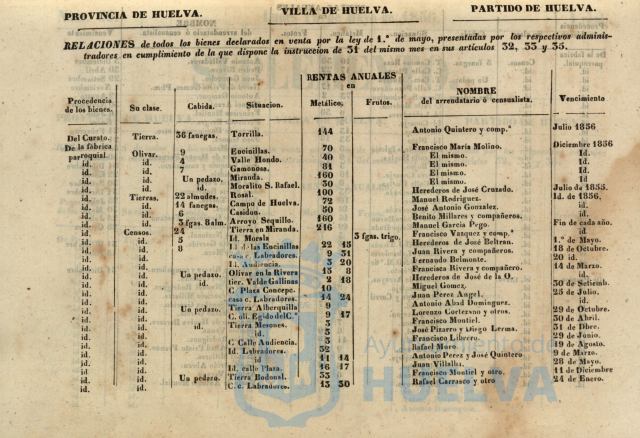 PROVINCIA DE HUELVA. VILLA DE HUELVA. PARTIDO DE HUELVA.
RELACIONES de todos los bienes declarados en venta por la ley de 1.º de mayo, presentadas por los respectivos adminis-
tradores en cumplimiento de la que dispone la instruccion de 31 del mismo mes en sus artículos 32, 33 y 35.
RENTAS ANUALES
en
Procedencia de los bienes. Su clase. Cabida. Situacion. Metálico. Frutos. NOMBRE del arrendatario ó censualista. Vencimiento
Del Curato. Tierra. 36 fanegas. Torrilla. 144 Antonio Quintero y comp.ª Julio 1856
De la fábrica parroquial. Olivar. 9 Encinillas. 70 Francisco María Molino. Diciembre 1856
id. 4 Valle Hondo. 40 El mismo. Id.
id. 7 Gamonosa. 81 El mismo. Id.
id. Un pedazo. Miranda. 160 El mismo. Id.
id. id. Moralito S. Rafael. 30 El mismo. Id.
id. Tierras. 22 almudes. Rosal. 100 Herederos de José Cruzado. Julio de 1855.
id. id. 14 fanegas. Campo de Huelva. 72 Manuel Rodriguez. Id. de 1856.
id. id. 6 Casidon. 50 José Antonio Gonzalez. id.
id. id. 3 fgas. 8 alm. Arroyo Sequillo. 160 Benito Millares y compañeros. id.
id. id. 24 Tierra en Miranda. 216 Manuel García Pego. Fin de cada año.
id. Censos. 5 Id. Morala 3 fgas. trigo. Francisco Vazquez y comp.ª id.
id. id. 8 Id. de las Encinillas 22 15 Herederos de José Beltran. 1.º de Mayo.
id. id. casa c. Labradores. 9 31 Juan Rivera y compañeros. 18 de Octubre.
id. id. Id. Audiencia. 3 20 Fernando Belmonte. 20 id.
id. id. Un pedazo. Olivar en la Rivera 15 8 Francisca Rivera y compañero. 14 de Marzo.
id. id. id. tier. Valde Gallinas 2 18 Herederos de José de la O. id.
id. id. C. Plaza Concepc. 10 Miguel Gomez. 30 de Setiemb.
id. id. casa c. Labradores. 14 24 Juan Perez Angel. 25 de Julio.
id. id. Un pedazo. Tierra Alberquilla 9 Antonio Abad Dominguez. id.
id. id. C. oli. Egido del C.º 9 17 Lorenzo Cortezano y otros. 29 de Octubre.
id. id. id. Tierra Mesones. 3 Francisco Montiel. 30 de Abril.
id. id. id. 3 José Pizarro y Diego Lerma. 31 de Dbre.
id. id. C. Calle Audiencia. 3 Francisco Librero. 29 de Junio.
id. id. Id. Labradores. 32 Rafael Mora. 19 de Agosto.
id. id. id 11 14 Antonio Perez y José Quintero 9 de Marzo.
id. id. Id. calle Plaza. 16 17 Juan Villalta. 28 de Mayo.
id. id. Un pedazo. Tierra Bodonal. 33 Francisco Montiel y otro. 11 de Diciembre
id. id. C. c. Labradores. 15 30 Rafael Carrasco y otro 24 de Enero.
Ayuntamiento de
HUELVA